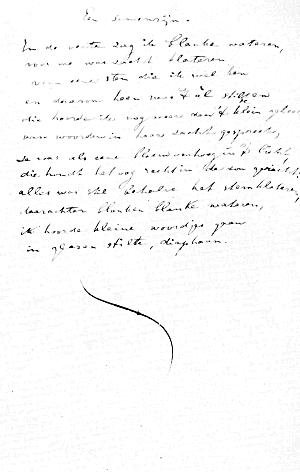 Een
In de verte zag ik blanke wateren,
voor me was zacht klateren
een stem die ik wel ken
en daarom heen was 't al
die hoorde ik nog meer dan 't klein
van woorden in haar zacht
Ze was als eene bloem
die houdt het oog recht in de zon gericht,
alles was stil behalve het stemklateren,
daarachter blonken blanke wateren,
ik hoorde kleine woordjes gaan
in glazen stilte, diaphaan.